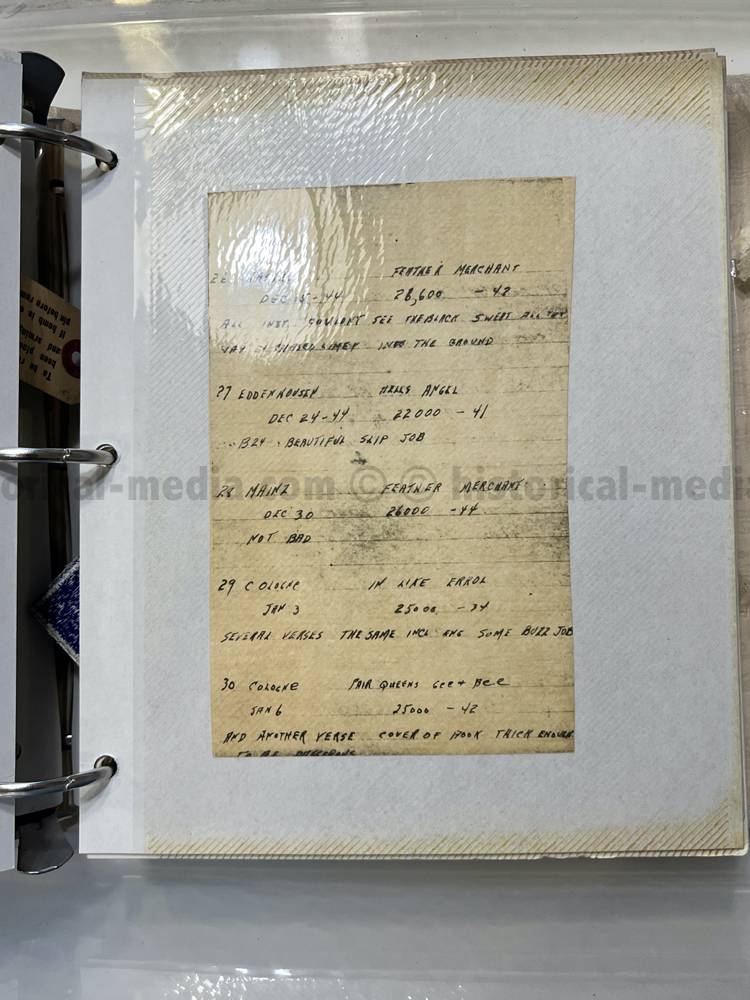 26 FEATHER MERCHANT
DEC - 44 28,600 - 42
ALL INST COULDN'T SEE THE BLACK SWEPT ALL
INTO THE GROUND
27 EDDENHOUSEN HELLS ANGEL
DEC 24-44 22000 - 41
B24 BEAUTIFUL SLIP JOB
28 MAINZ FEATHER MERCHANT
DEC 30 26000 - 44
NOT BAD
29 COLOGNE IN LIKE ERROL
JAN 3 25000 - 34
SEVERAL VERSES THE SAME INCL ENG SOME BUZZ JOB
30 COLOGNE FAIR QUEENS GEE + BEE
JAN 6 25000 - 42
AND ANOTHER VERSE COVER OF BOOK THICK ENOUGH
TO BE
To be
plac
been
and arming
If bomb is
pin before
historical-media.com © © historical-media